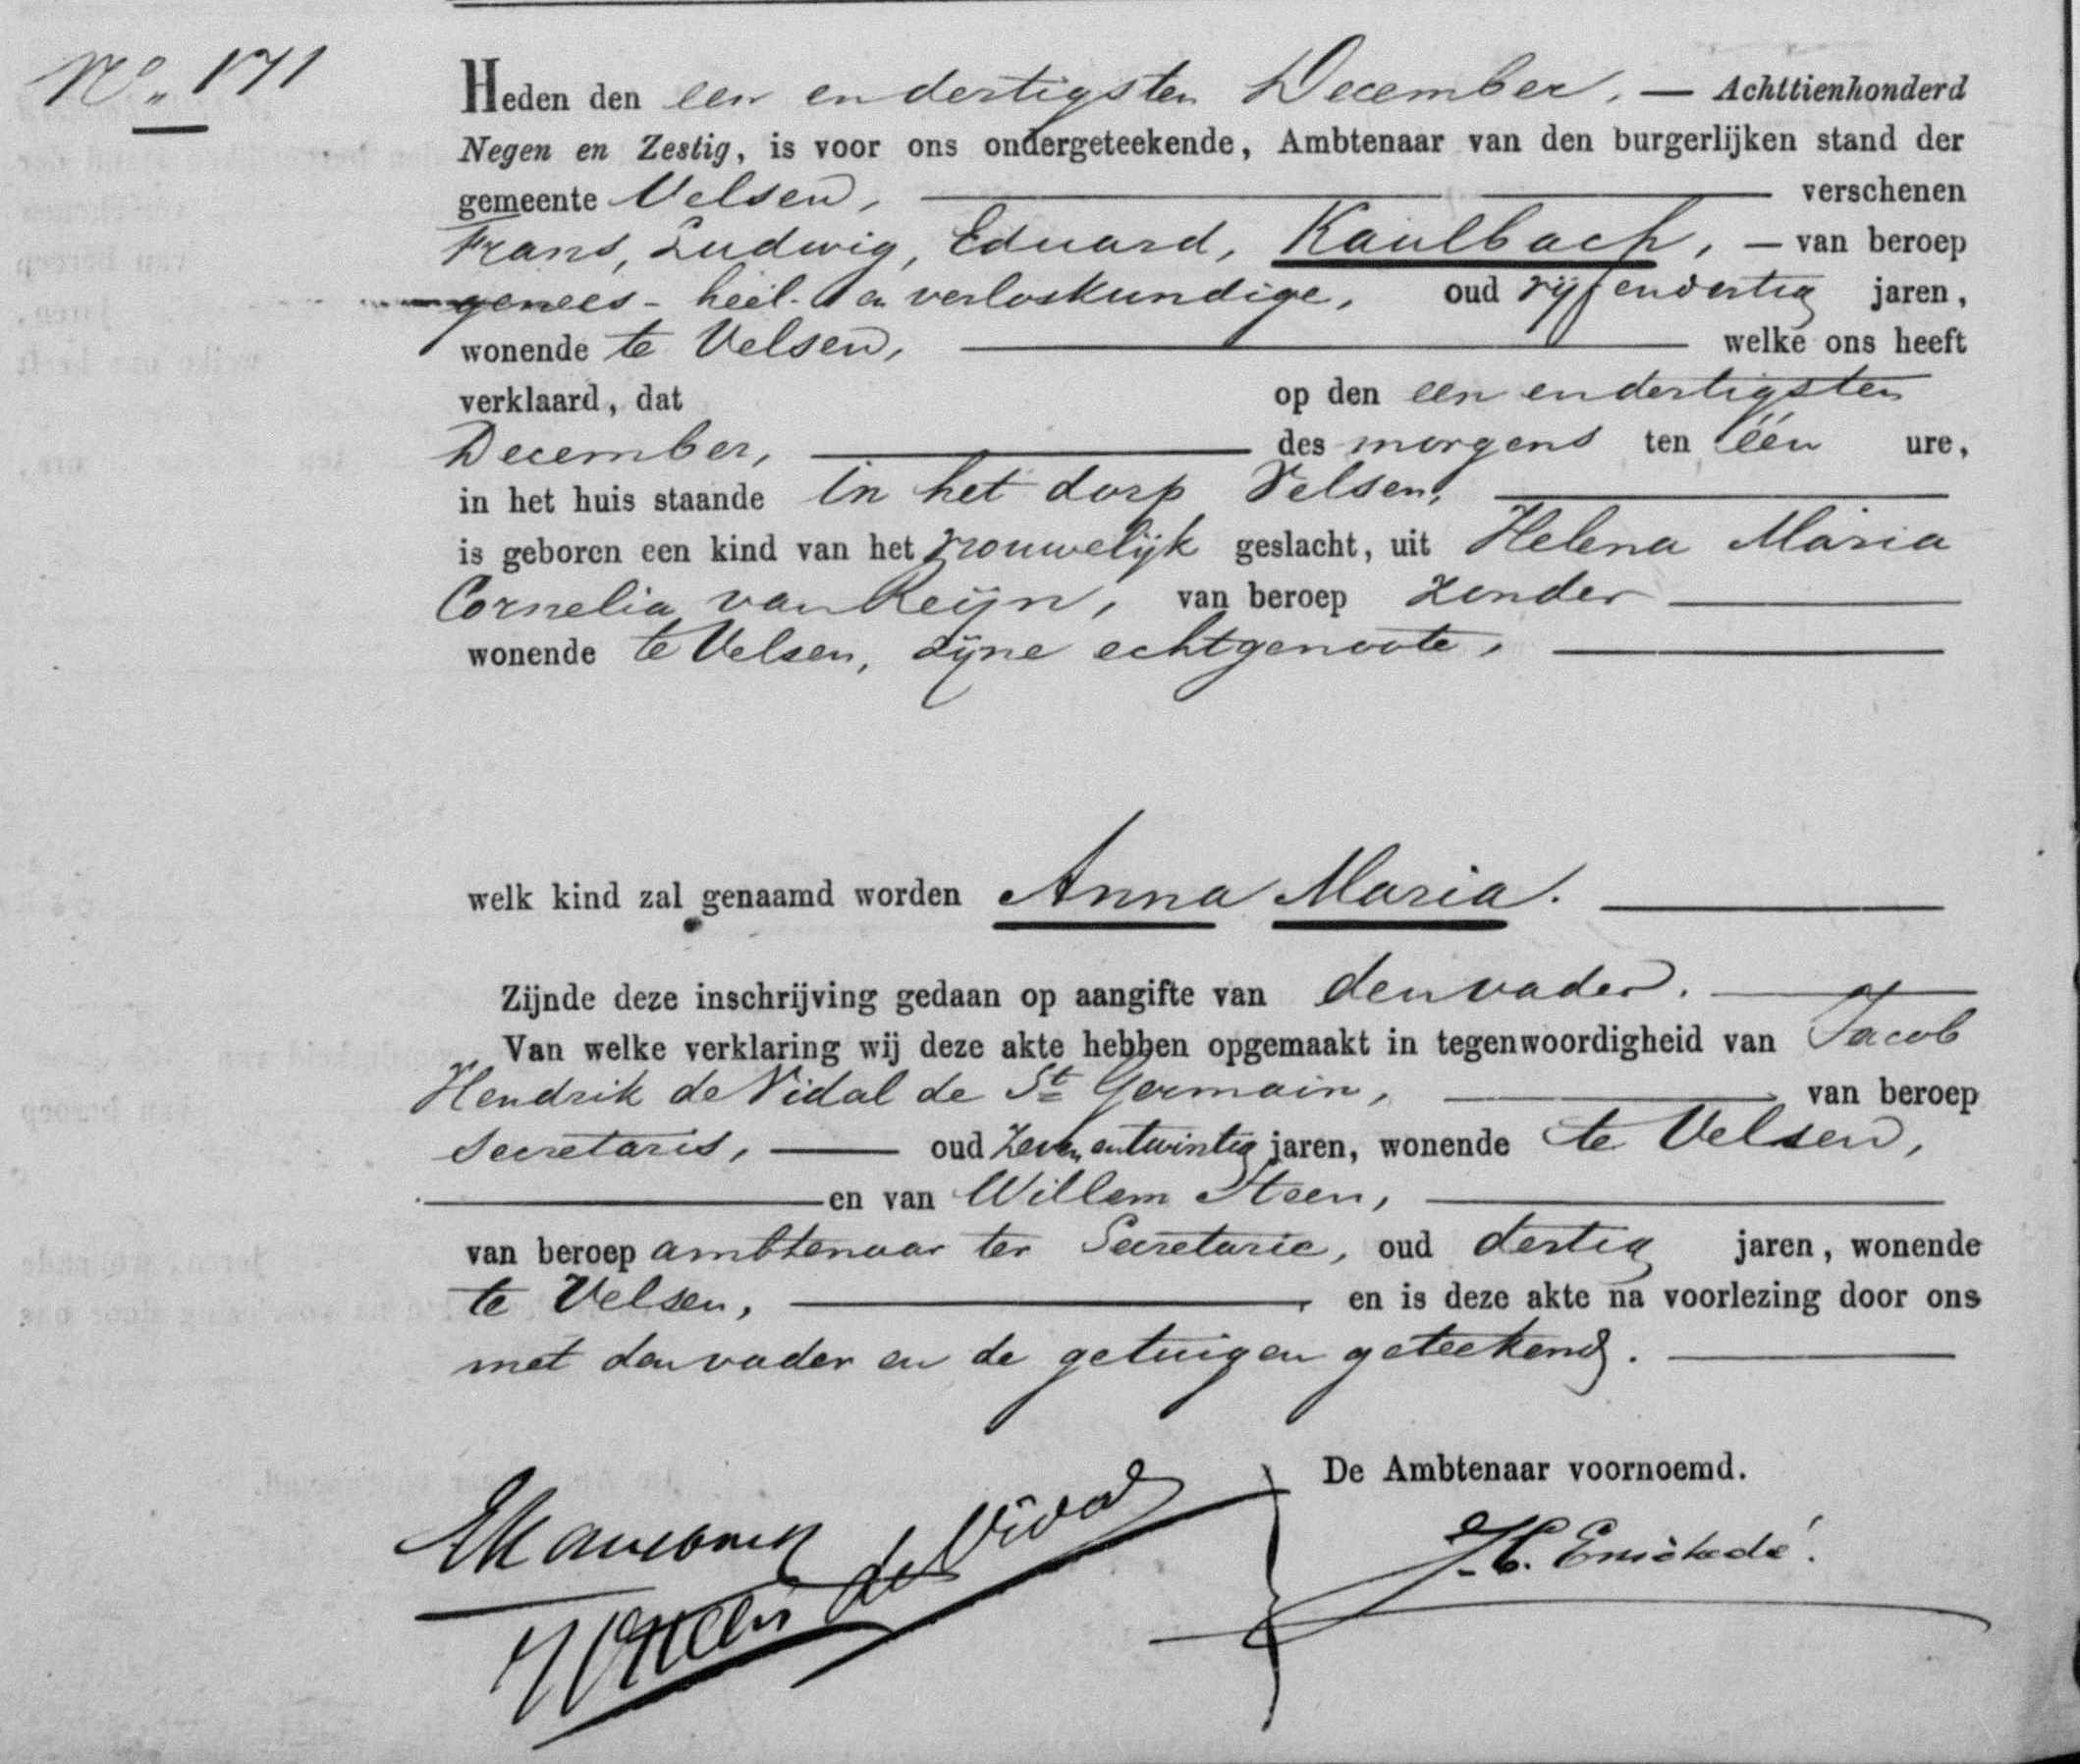 No. 171
Heden den een en dertigsten December, — Achttienhonderd
Negen en Zestig, is voor ons ondergeteekende, Ambtenaar van den burgerlijken stand der
gemeente Velsen, verschenen
Frans, Ludwig, Eduard, Kaulbach, — van beroep
genees- heel- en verloskundige, oud vijf en dertig jaren,
wonende te Velsen, welke ons heeft
verklaard, dat op den een en dertigsten
December, des morgens ten één ure,
in het huis staande in het dorp Velsen,
is geboren een kind van het vrouwelijk geslacht, uit Helena Maria
Cornelia van Reijn, van beroep zonder
wonende te Velsen, zijne echtgenoote,
welk kind zal genaamd worden Anna Maria.
Zijnde deze inschrijving gedaan op aangifte van den vader.
Van welke verklaring wij deze akte hebben opgemaakt in tegenwoordigheid van Jacob
Hendrik de Vidal de St Germain, van beroep
Secretaris, oud zeven en twintig jaren, wonende te Velsen,
en van Willem Steen,
van beroep ambtenaar ter Secretarie, oud dertig jaren, wonende
te Velsen, en is deze akte na voorlezing door ons
met den vader en de getuigen geteekend.
De Ambtenaar voornoemd.
EKaulbach
de Vidal
J.C. Enschedé.
WSteen